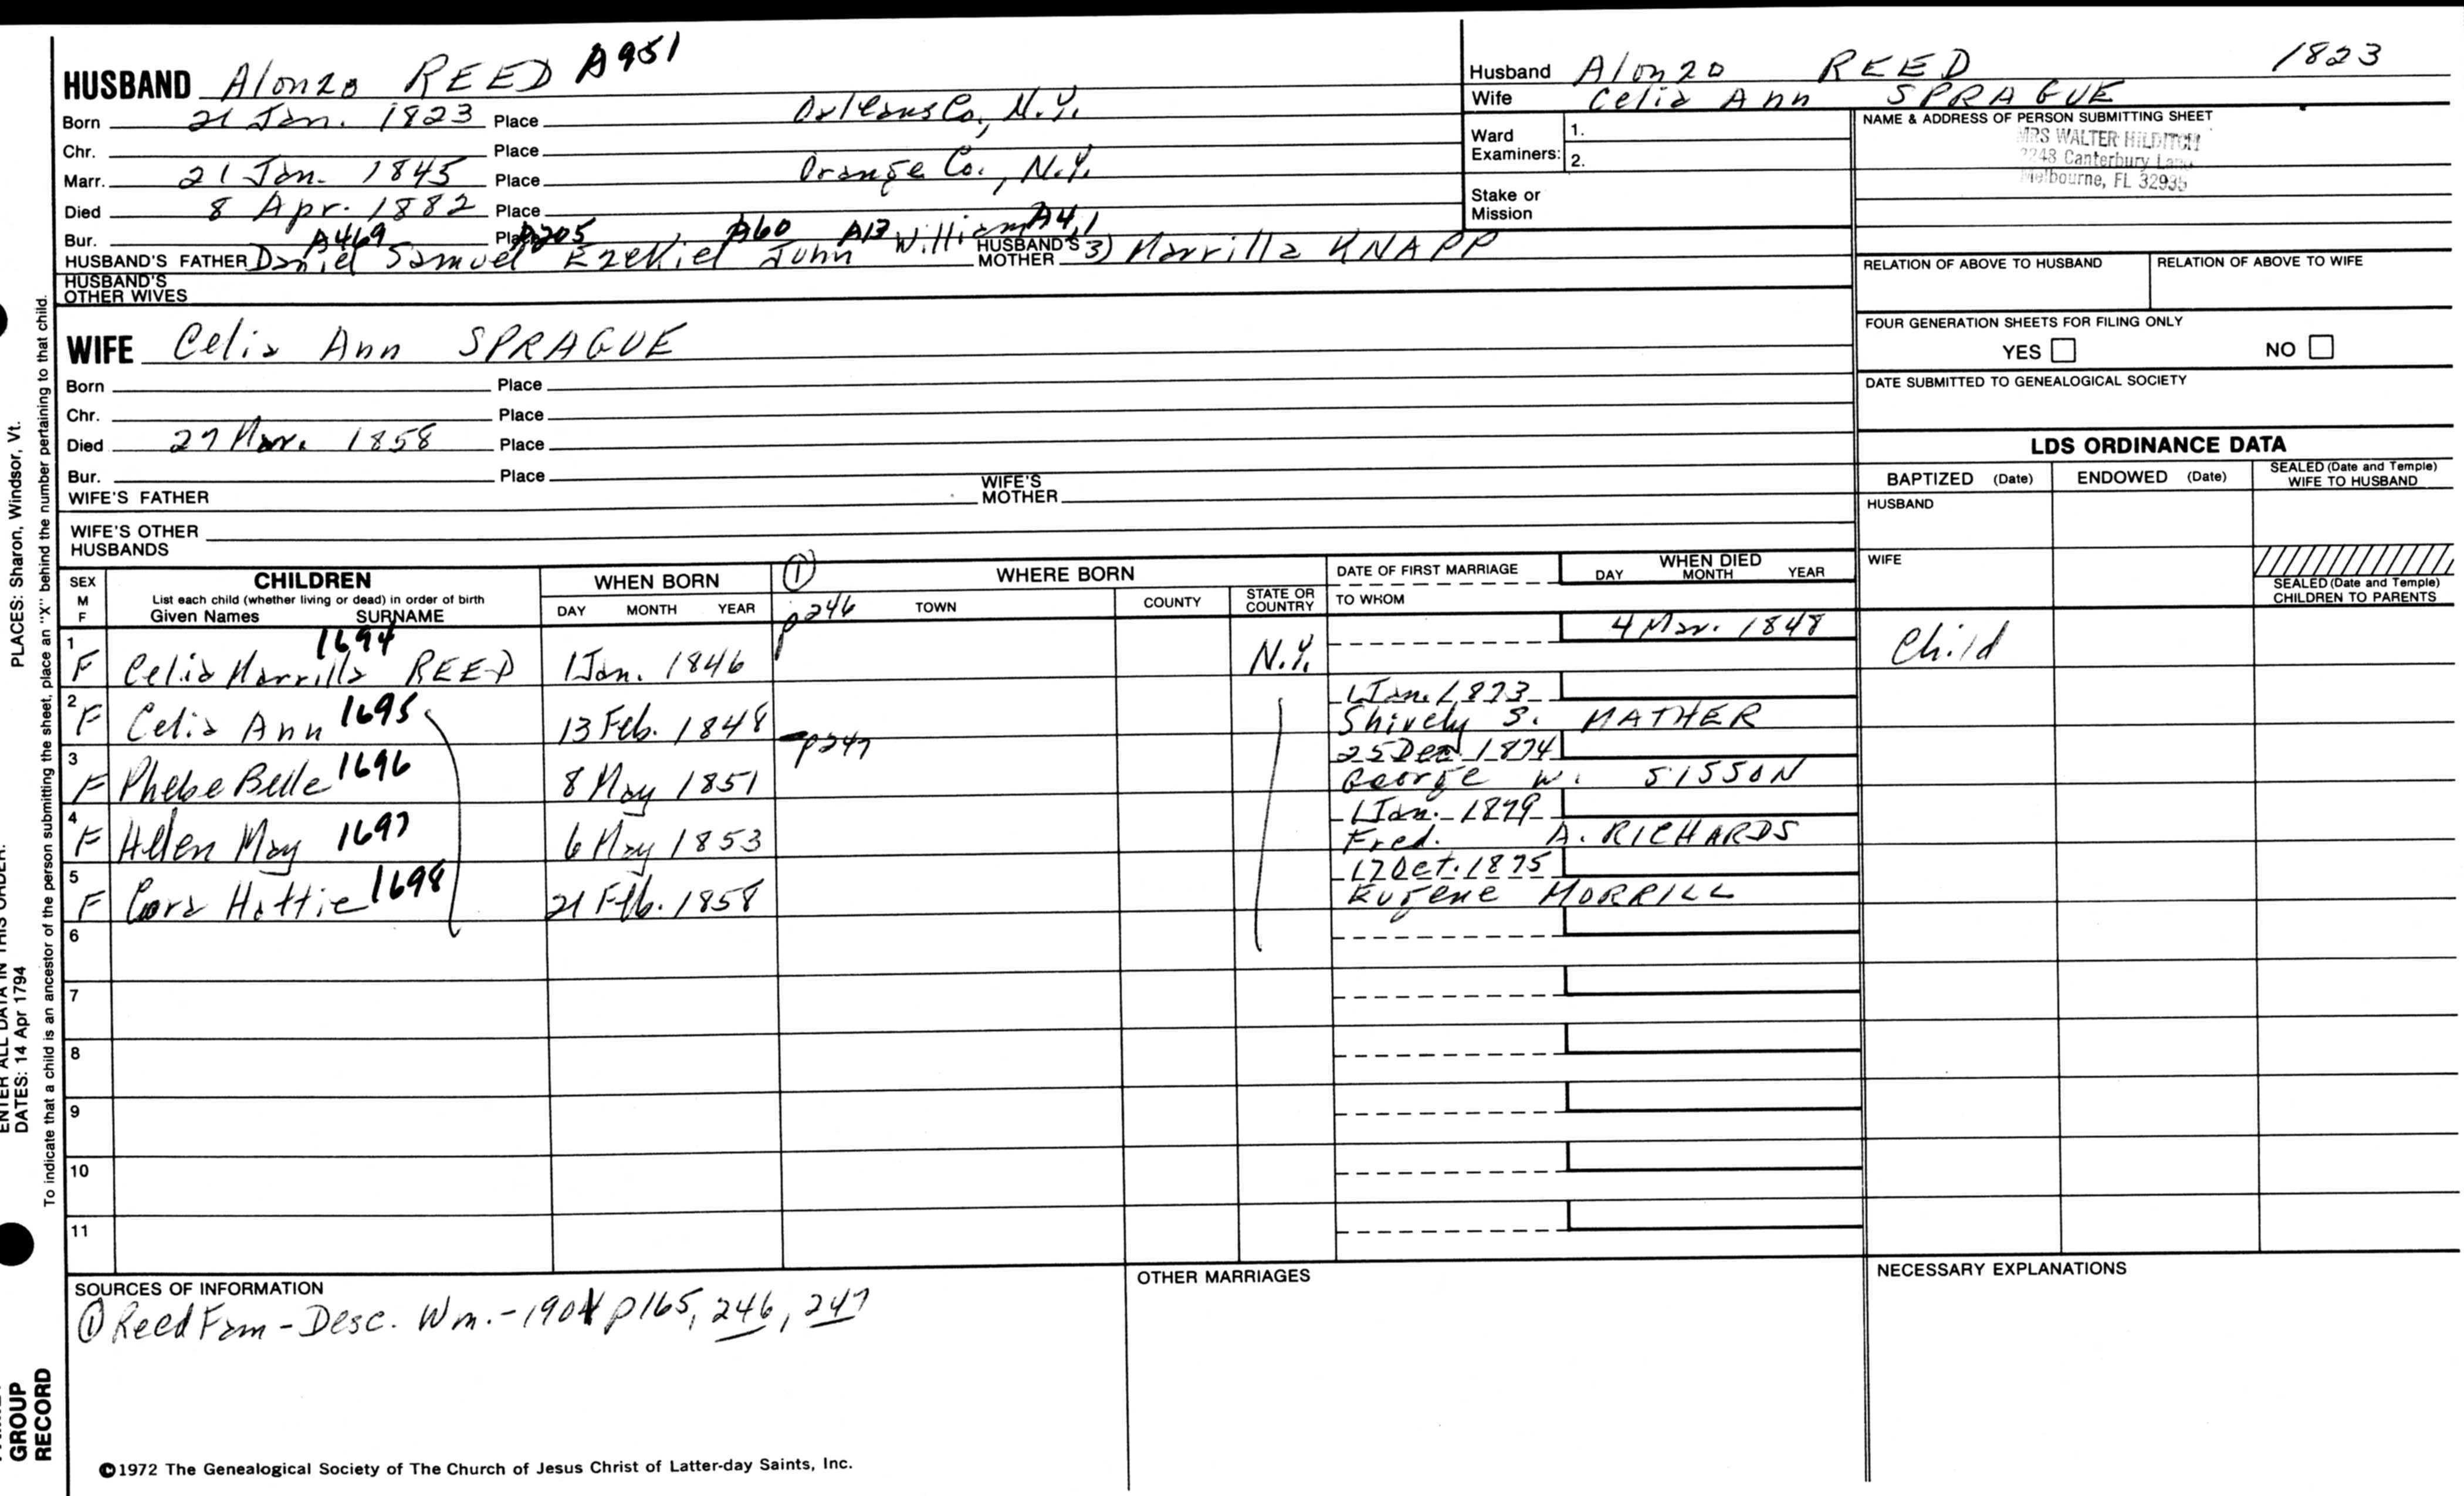 HUSBAND Alonzo REED A951
Born 21 Jan. 1823 Place Orleans Co., N.Y.
Chr. Place
Marr. 21 Jan. 1845 Place Orange Co., N.Y.
Died 8 Apr. 1882 Place
Bur. Place
A469 A205 A60 A13 A4,1
HUSBAND'S FATHER Daniel Samuel Ezekiel John William HUSBAND'S MOTHER 3) Marrilla KNAPP
HUSBAND'S OTHER WIVES
Husband Alonzo REED 1823
Wife Celia Ann SPRAGUE
Ward Examiners: 1.
2.
Stake or Mission
NAME & ADDRESS OF PERSON SUBMITTING SHEET
MRS WALTER HILDITCH
2248 Canterbury Lane
Melbourne, FL 32935
RELATION OF ABOVE TO HUSBAND RELATION OF ABOVE TO WIFE
FOUR GENERATION SHEETS FOR FILING ONLY
YES NO
DATE SUBMITTED TO GENEALOGICAL SOCIETY
WIFE Celia Ann SPRAGUE
Born Place
Chr. Place
Died 27 Mar. 1858 Place
Bur. Place
WIFE'S FATHER WIFE'S MOTHER
WIFE'S OTHER HUSBANDS
LDS ORDINANCE DATA
BAPTIZED (Date) ENDOWED (Date) SEALED (Date and Temple) WIFE TO HUSBAND
HUSBAND
WIFE
SEALED (Date and Temple) CHILDREN TO PARENTS
SEX M F
CHILDREN
List each child (whether living or dead) in order of birth
Given Names SURNAME
WHEN BORN
DAY MONTH YEAR
① WHERE BORN
p246 TOWN COUNTY STATE OR COUNTRY
DATE OF FIRST MARRIAGE
TO WHOM
WHEN DIED
DAY MONTH YEAR
1 F Celia Marrilla REED 1694 1 Jan. 1846 N.Y. 4 Mar. 1848 Child
2 F Celia Ann 1695 13 Feb. 1848 1 Jan. 1873
Shively S. MATHER
p247
3 F Phebe Belle 1696 8 May 1851 25 Dec. 1874
George W. SISSON
4 F Helen May 1697 6 May 1853 1 Jan. 1879
Fred. A. RICHARDS
5 F Cora Hattie 1698 21 Feb. 1858 17 Oct. 1875
Eugene MORRILL
6
7
8
9
10
11
SOURCES OF INFORMATION
① Reed Fam - Desc. Wm. - 1901 p165, 246, 247
OTHER MARRIAGES
NECESSARY EXPLANATIONS
©1972 The Genealogical Society of The Church of Jesus Christ of Latter-day Saints, Inc.
PLACES: Sharon, Windsor, Vt.
ENTER ALL DATA IN THIS ORDER:
DATES: 14 Apr 1794
To indicate that a child is an ancestor of the person submitting the sheet, place an "X" behind the number pertaining to that child.
GROUP
RECORD